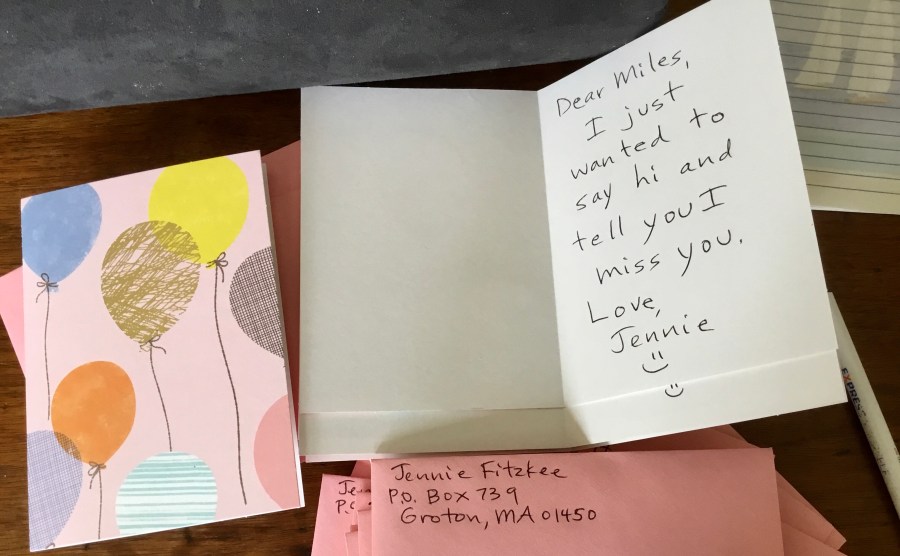 Dear Miles,
I just
wanted to
say hi and
tell you I
miss you.
Love,
Jennie
Jennie Fitzkee
P.O. Box 739
Groton, MA 01450
Je
P.O
EXPRES